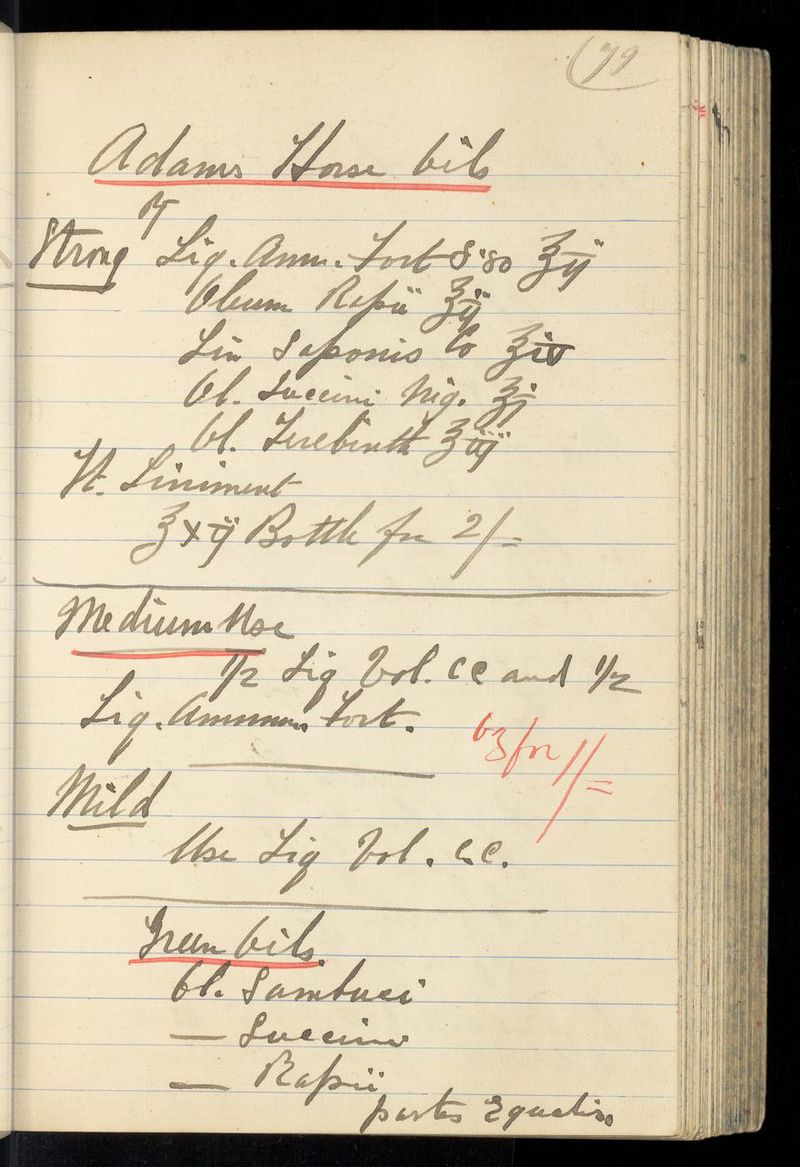 79
Adams Horse Oils
℞
Strong Liq. Amm. Fort 8·80 ʒij
Oleum Rapii ʒij
Lin Saponis Co ʒiv
Ol. Succini Nig. ʒj
Ol. Terebinth ʒiij
Ft. Liniment
ʒxij Bottle for 2/-
Medium Use
1/2 Liq Vol. CC and 1/2
Liq. Ammon Fort.
6ʒ for 1/=
Mild
Use Liq Vol. C.C.
Green Oils.
Ol. Sambuci
— Succini
— Rapii
partes Equalis